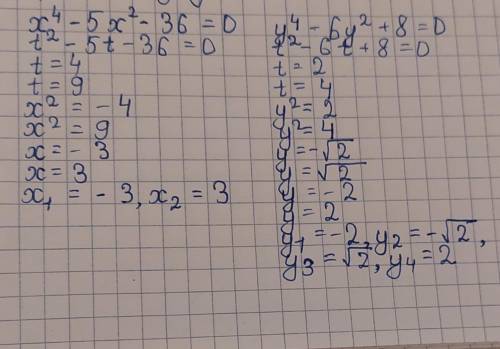 x⁴ - 5x² - 36 = 0
t² - 5t - 36 = 0
t = 4
t = 9
x² = - 4
x² = 9
x = - 3
x = 3
x₁ = - 3, x₂ = 3
y⁴ - 6y² + 8 = 0
t² - 6t + 8 = 0
t = 2
t = 4
y² = 2
y² = 4
y = -√2
y = √2
y = - 2
y = 2
y₁ = -2, y₂ = -√2,
y₃ = √2, y₄ = 2